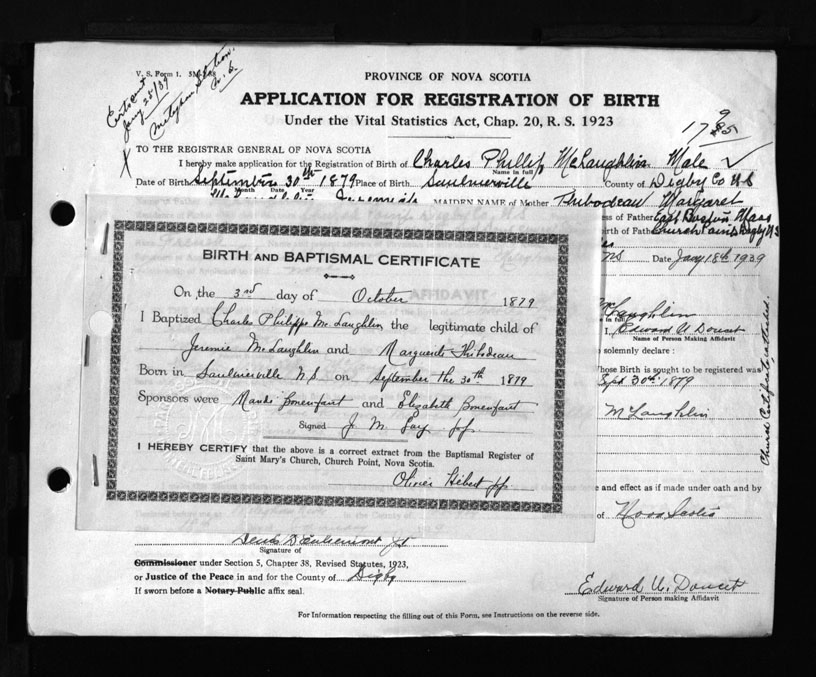 V. S. Form 1.
Cert sent
Jany 25/39
Meteghan Station,
N. S.
PROVINCE OF NOVA SCOTIA
APPLICATION FOR REGISTRATION OF BIRTH
Under the Vital Statistics Act, Chap. 20, R. S. 1923
TO THE REGISTRAR GENERAL OF NOVA SCOTIA
I hereby make application for the Registration of Birth of Charles Phillip McLaughlin Male
Name in full
Date of Birth September 30th 1879 Place of Birth Saulnierville County of Digby Co N S
Month Date Year
Jeremiah MAIDEN NAME of Mother Thibodeau Margaret
of Father East Boston Mass
of Father Church Point Digby N S
NS Date Jany 18th 1939
McLaughlin
in full
I, Edward U Doucet
Name of Person Making Affidavit
solemnly declare :
Whose Birth is sought to be registered was
Sept 30th 1879
McLaughlin
Church Certificate attached.
BIRTH AND BAPTISMAL CERTIFICATE
On the 3rd day of October 1879
I Baptized Charles Philippe McLaughlin the legitimate child of
Jeremie McLaughlin and Marguerite Thibodeau
Born in Saulnierville N S on September the 30th 1879
Sponsors were Bonenfant and Elizabeth Bonenfant
Signed J. M. Gay
I HEREBY CERTIFY that the above is a correct extract from the Baptismal Register of
Saint Mary's Church, Church Point, Nova Scotia.
Olivier Hébert
and effect as if made under oath and by
of Nova Scotia
Signature of
Commissioner under Section 5, Chapter 38, Revised Statutes, 1923,
or Justice of the Peace in and for the County of Digby
If sworn before a Notary Public affix seal.
Edward U. Doucet
Signature of Person making Affidavit
For Information respecting the filling out of this Form, see Instructions on the reverse side.